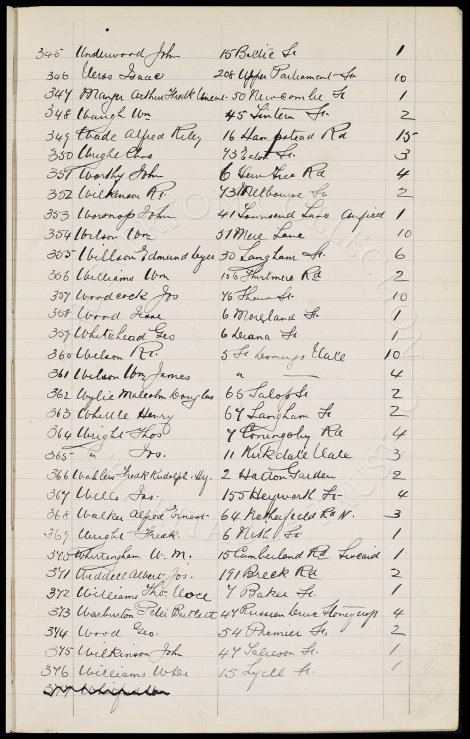 345 Underwood John 15 Baltic St 1
346 Veros Isaac 208 Upper Parliament St 10
347 Mayer Arthur Fredk Vincent 50 Newcombe St 1
348 Waugh Wm 45 Sintern St. 2
349 Wade Alfred Riley 16 Hampstead Rd 15
350 Wright Chas 73 St. 3
351 Worthy John 6 Rd 4
352 Wilkinson Rt. 73 Melbourne St 2
353 John 41 Townsend Lane Anfield 1
354 Wilson Wm 51 Mere Lane 10
355 Willson Edmund 30 Langham St. 6
356 Williams Wm 106 Thirlmere Rd 2
357 Woodcock Jos 45 St. 10
358 Wood Jesse 6 Moreland St. 1
359 Whitehead Geo 6 Diana St 1
360 Wilson Rt. 5 St Vale 10
361 Wilson Wm James " 4
362 Wylie Malcolm Douglas 65 Salop St 2
363 Whittle Henry 67 Langham St 2
364 Wright Thos 7 Coningsby Rd 4
365 " Jos. 11 Kirkdale Vale 3
366 Wahlers Fredk Rudolph. Hy. 2 Hatton Garden 2
367 Wells Jas. 155 Heyworth St 4
368 Walker Alfred Ernest 64 Netherfield Rd N. 3
369 Wright Fredk. 6 St. 1
370 Whittingham W. M. 15 Cumberland Rd Liscard 1
371 Weddell Albert Jos. 191 Breck Rd 2
372 Williams Thos 7 Baker St. 1
373 Warburton Peter Bartlett 47 Russian Drive Stoneycroft 4
374 Wood Geo. 54 Premier St. 2
375 Wilkinson John 47 St. 1
376 Williams 15 Lyell St. 1
377